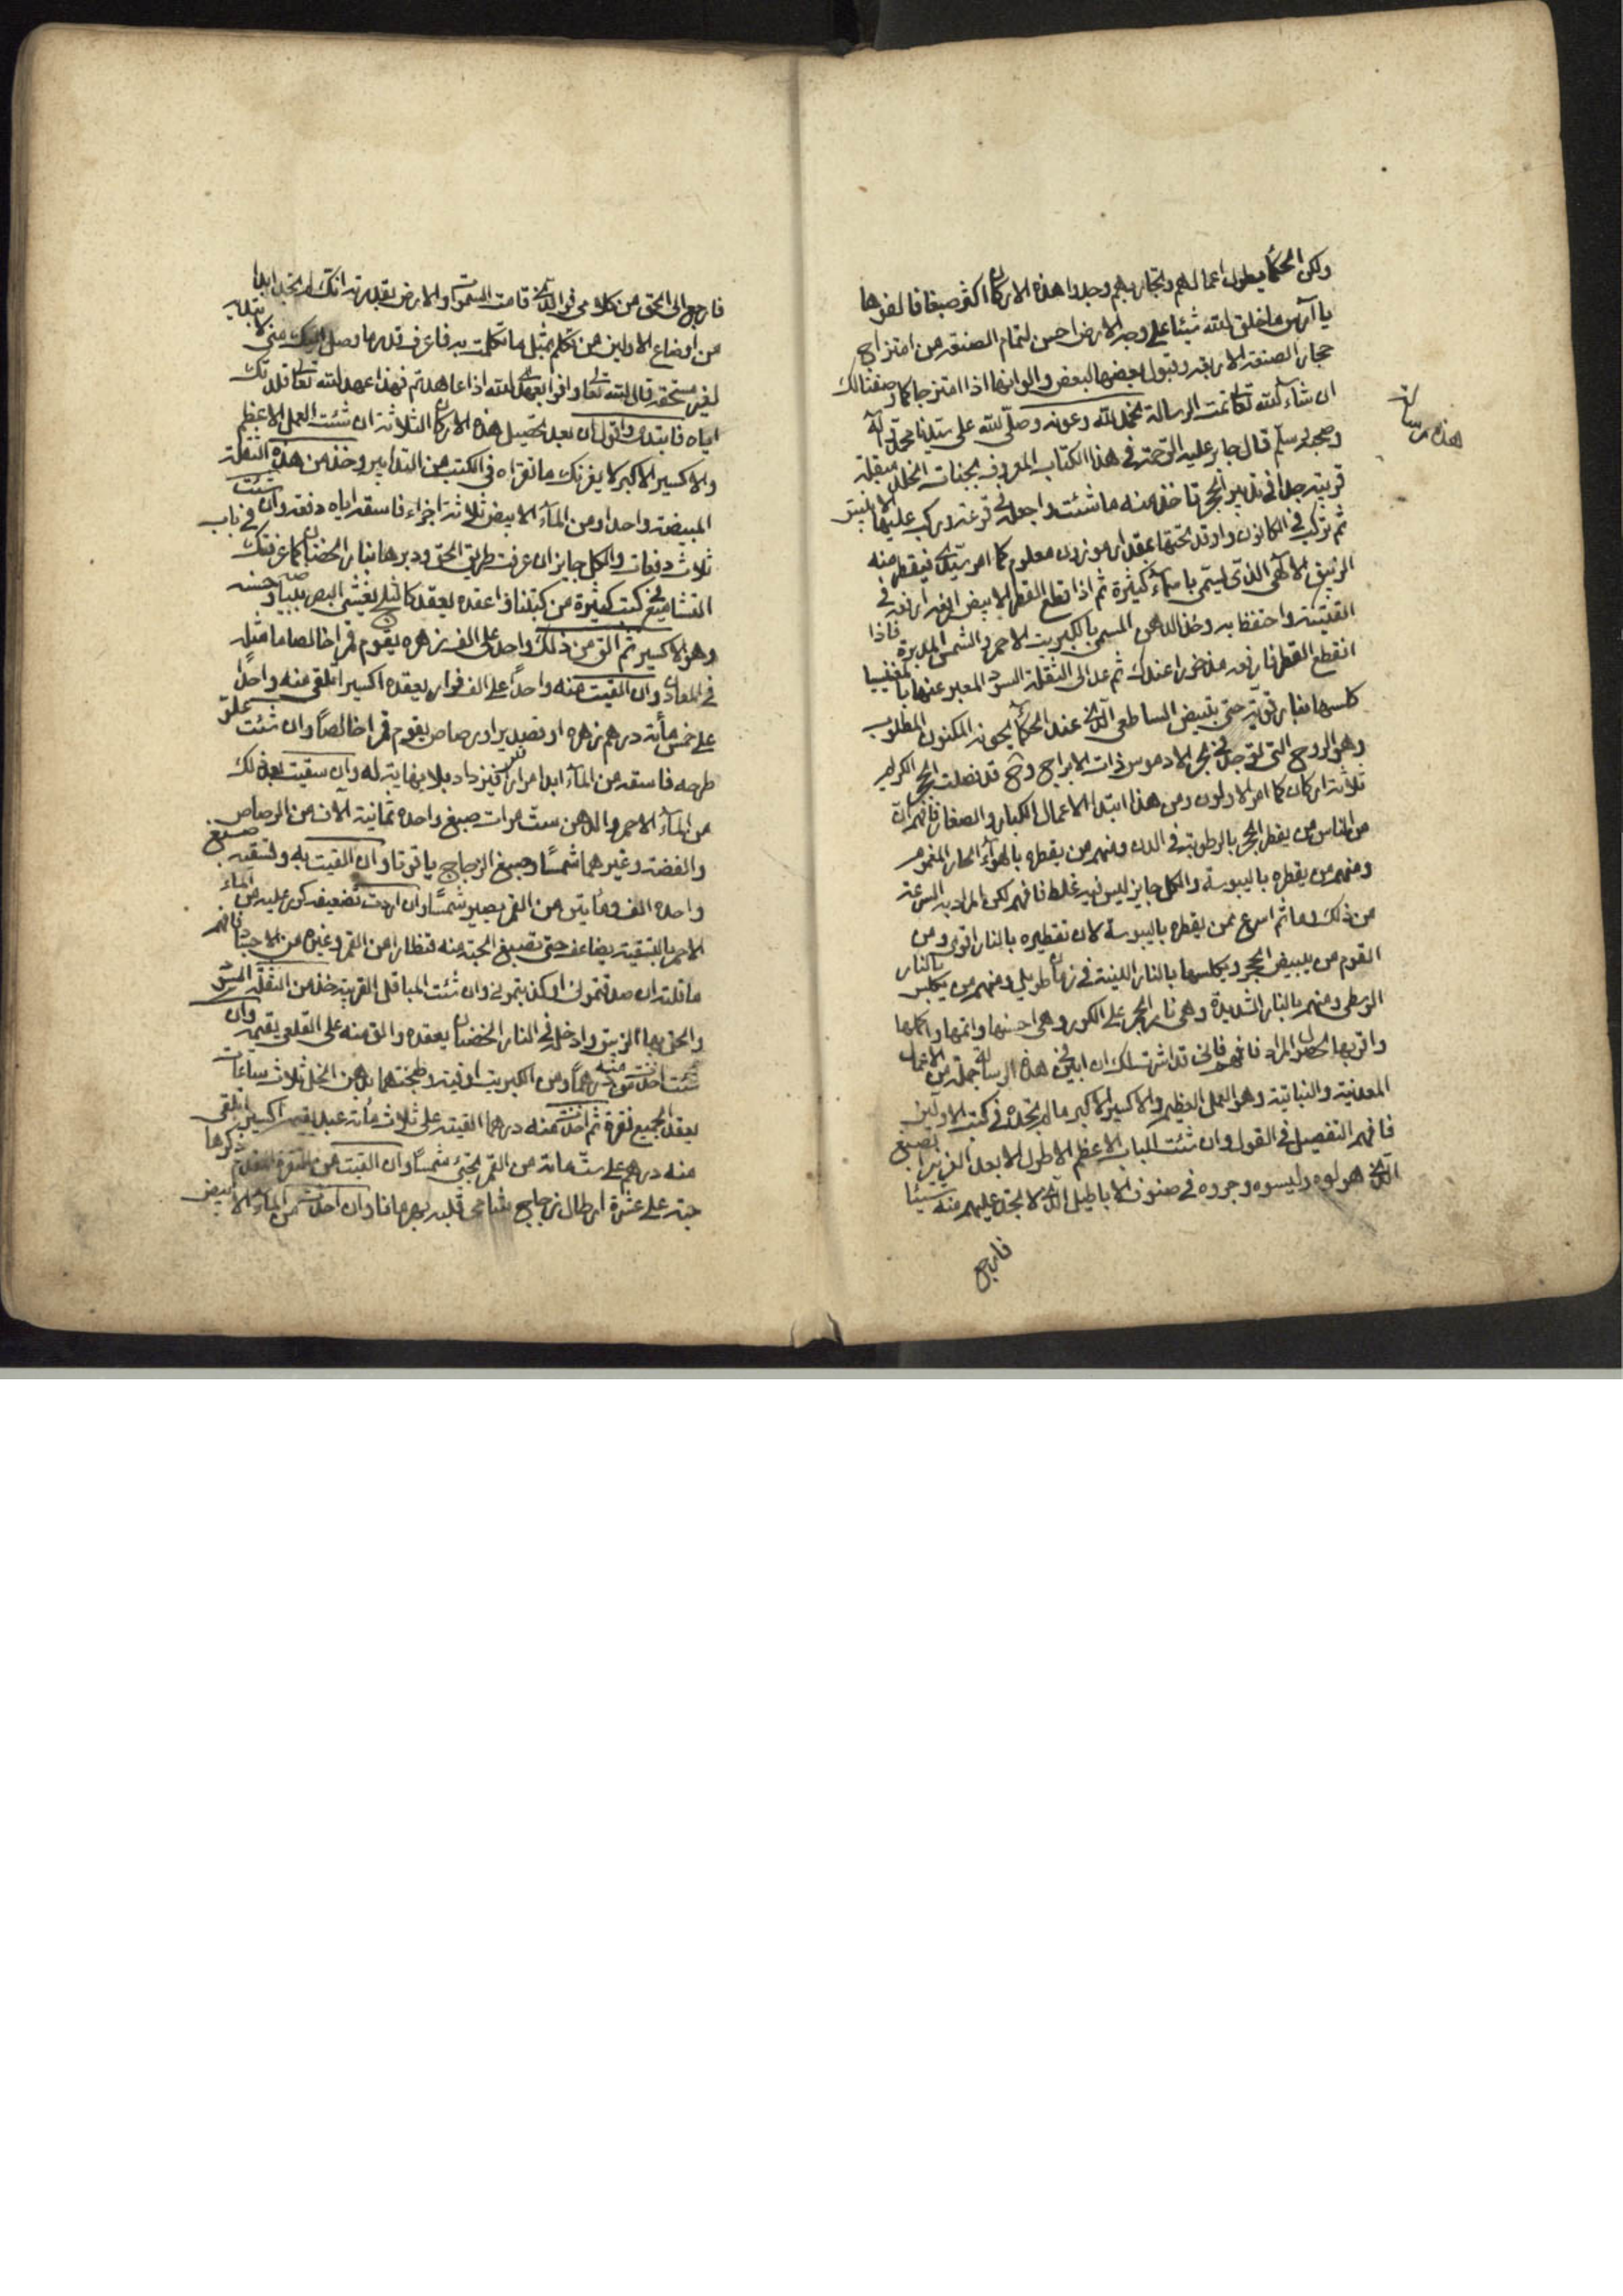 ولكن الحكما بطول اعمالهم وتجاربهم وجدوا هذه الاركان اكثر صبغا فالفوها
يا آرس ما خلق الله شيئا على وجه الارض احسن لتمام الصنعة من امتزاج
حجار الصنعة الاربعة وقبول بعضها لبعض والوانها اذا امتزجا كما وصفنا لك
ان شاء الله تعالى تمت الرسالة بحمد الله وعونه وصلى الله على سيدنا محمد وآله
وصحبه وسلم قال جابر عليه الرحمة في هذا الكتاب المعروف بجنات الخلد
قريبة جدا في تدبير الحجر تاخذ منه ما شئت واجعله في قرعة وركب عليها الانبيق
ثم تركب في الكانون واوقد تحتها بمقدار موزون معلوم كما امرتك فيقطر منه
الزئبق الالهي الذي يسمى باسماء كثيرة ثم اذا قطع القطر الابيض ارفعه في
القنينة واحتفظ به وخذ الدهن المسمى بالكبريت الاحمر والشمس المدبرة فاذا
انقطع القطر فارفعه مذخورا عندك ثم عد الى الثفلة السود المعبر عنها بالمغنيسيا
كلسها بنار قوية حتى تبيض الساطعي الذي عند الحكماء المكنون المطلوب
وهو الروح التي توجد في بحر الادموس ذات الابراج وقد فصلت الحجر الكرام
ثلاثة اركان كما امر الاولون ومن هذا ابتدا الاعمال الكبار والصغار فافهم ان
من الناس من يقطر الحجر بالرطوبة في الدن ومنهم من يقطره بالهواء الحار المغموم
ومنهم من يقطره باليبوسة والكل جايز ليس فيه غلط فافهم لكن المراد به السرعة
من ذلك وما ثم اسرع ممن يقطره باليبوسة لان تقطيره بالنار اقوى ومن
القوم من يبيض الحجر ويكلسها بالنار اللينة في زمان طويل ومنهم من يكلس بالنار
الوسطى ومنهم بالنار الشديدة وهي نار الحجر على الكور وهي احسنها واتمها واكملها
واقربها لحصول المراد فافهم فاني قد اشرت لك ان ابين في هذه الرسالة جملة من الاعمال
المعدنية والنباتية وهو العمل العظيم والاكسير الاكبر ما لم تجده في كتب الاولين
فافهم التفصيل في القول وان شئت الباب الاعظم الاطول الابعد الغزير بصبغ
الذي هولوه ولبسوه وجروه في صنوف الاباطيل الذي لا تجد عليهم منه شيئا
فارجع
هذه رسالة
فارجع الى الحق من كلامي فو الذي قامت السموات والارض بقدرته انك لم تجد ابدا
من اوضاع الاولين من تكلم بمثل ما تكلمت به فاعرف قدر ما وصل اليك مني لا تبديه
لغير مستحقه قال الله تعالى واوفوا بعهد الله اذا عاهدتم فهذا عهد الله تعالى قلدتك
اياه فابتدى واقول ان بعد تحصيل هذه الاركان الثلاثة ان شئت العمل الاعظم
والاكسير الاكبر لا يغرنك ما تقراه في الكتب من التدابير وخذ من هذه الثفلة
المبيضة واحدا ومن الماء الابيض ثلاثة اجزاء فاسقه اياه دفعة وان شئت
ثلاث دفعات والكل جايز ان عرفت طريق الحق ودبرها بنار الحضان كما عرفتك في باب
التشاميع في كتب كثيرة من كتبنا فاعقده يعقد كالثلج يغشي البصر ببياضه وحسنه
وهو الاكسير ثم الق من ذلك واحد على الف زهره يقوم قمرا خالصا ما مثله
في المعادن وان القيت منه واحدا على الف فرار يعقده اكسيرا تلقي منه واحدا
على خمس مأئة درهم زهره او قصدير او رصاص يقوم قمرا خالصا وان شئت علو
طرحه فاسقه من الماء ابدا مرارا كثيرة يزداد بلا نهاية له وان سقيت بعد ذلك
من الماء الاحمر والدهن ست مرات صبغ واحده ثمانية الاف من الرصاص
والفضة وغيرهما شمسا وصبغ الزجاج ياقوتا وان القيت به ولتسقيه صبغ
واحده الف ومأتين من القمر يصير شمسا وان اردت تضعيفه كرر عليه من الماء
الاحمر بالتسقية يضاعف حتى تصبغ الحبة منه قنطارا من القمر وغيره من الاجساد فافهم
ما قلته ان صدقتموني او كذبتموني وان شئت المباقل القريبة خذ من الثفلة السود
والحق بها الزيبق وادخله في النار الحضان يعقده والق منه على القلعي يقيمه وان
شئت اخذت منه درهما ومن الكبريت اوقية وطبختهما بدهن الخل ثلاث ساعات
يعقد الجميع نقرة ثم اخذت منه درهما القيته على ثلاث مأئة عبد يقيمه اكسيرا تلقي
منه درهم على ستمائة من القمر يجئ شمسا وان القيت من النقرة المقدم ذكرها
حبة على عشرة ارطال زجاج شامي قلبه بهرمانا وان اخذت من الماء الابيض